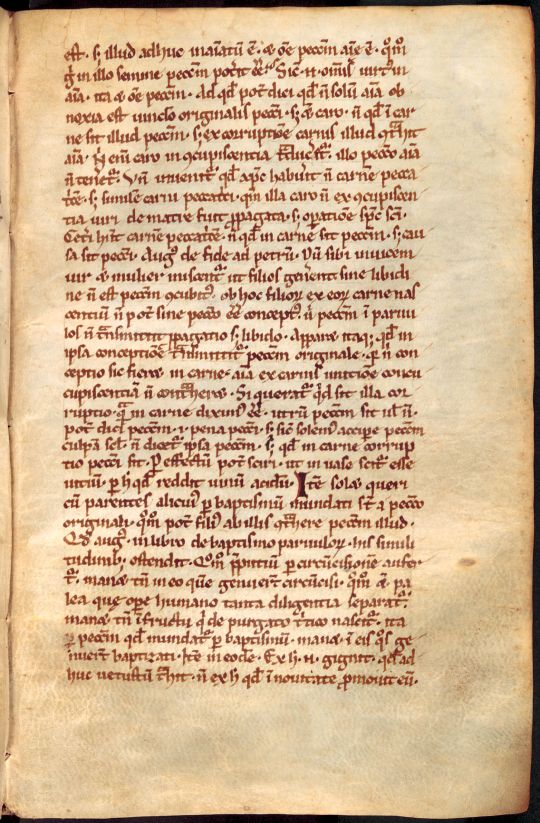 est. s; illud adhuc inaīatū ē. & oē pecc̄m aīe ē. qm̄
ḡ in illo semine pecc̄m pot̄it ēē. Sic̄ .n. om̄is uirt' in
aīa. ita & oē pecc̄m. Ad qd̄ pot̄ dici qd̄ n̄ solū aīa ob
noxia est uinclo originalis pecc̄i. s; & caro. n̄ qd̄ ī car
ne sit illud pecc̄m. s; ex corruptiōe carnis illud
aīam. caro in ꝯcupiscentia illo pecc̄o aīa
n̄ tenet̄. V̄n̄ inuenit̄ qd̄ habuit̄ n̄ carnē pecca
s; similē carni peccat̄i. qm̄ illa caro n̄ ex ꝯcupiscen
tia uiri de matre fuit ꝓpagata. s; opatiōe sp̄c sc̄i.
Cet̄i hn̄t carnē n̄ qd̄ in carne sit pecc̄m. s; cau
sa sit pecc̄i. Aug'. de fide ad petrū. Dū sibi inuicem
uir & mulier miscent̄. ut filios gen̄ent sine libidi
ne n̄ est pecc̄m ꝯcubit'. ob hoc filior̄ ex eor̄ carne nas
centiū n̄ pot̄ sine pecc̄o ēē concept'. pecc̄m ī paruu
los n̄ t̄nsmittit ꝓpagatio s; libido. Appare itaq; qd̄ in
ipsa conceptiōe t̄nsmittit̄ pecc̄m originale. n̄ con
ceptio sic fieret in carne. aīa ex carnis unitiōe concu
cupiscentiā n̄ cont̄heret. Si querat̄ qd̄ sit illa cor
ruptio. quā in carne dixim' ēē. utrū pecc̄m sit ul' n̄.
pot̄ dici pecc̄m .i. pena pecc̄i. s; sic̄ solem' accipe pecc̄m
culpā scl̄. n̄ dicet̄ ipsa pecc̄m. s; qd̄ in carne corrup
tio pecc̄i sit. p̄ effectū pot̄ sciri. ut in uase scit̄ esse
uitiū. p̄ h̄ qd̄ reddit uinū acidū. Itē solet queri
cū parentes alicui' p̄ baptismū mundati s̄t a pecc̄o
originali. qm̄ pot̄ fili' ab illis t̄here pecc̄m illud.
Qd̄ aug'. in libro de baptismo paruulor̄. his simili
tudinib; ostendit. Qm̄ p̄puitiū p̄ circūcisionē aufer
t̄. manet tn̄ in eo quē genuer̄t circūcisi. qm̄ & pa
lea que opē humano tanta diligentia separat̄.
manet tn̄ ī fructu q̄ de purgato t̄tico nascit̄. ita
pecc̄m qd̄ mundat̄ p̄ baptismū. manet ī eis q's ge
nuer̄t baptizati. Itē in eodē. Ex h̄ .n. gignit. qd̄ ad
huc uetustū t̄hit. n̄ ex h̄ qd̄ ī nouitate p̄mouit eū.